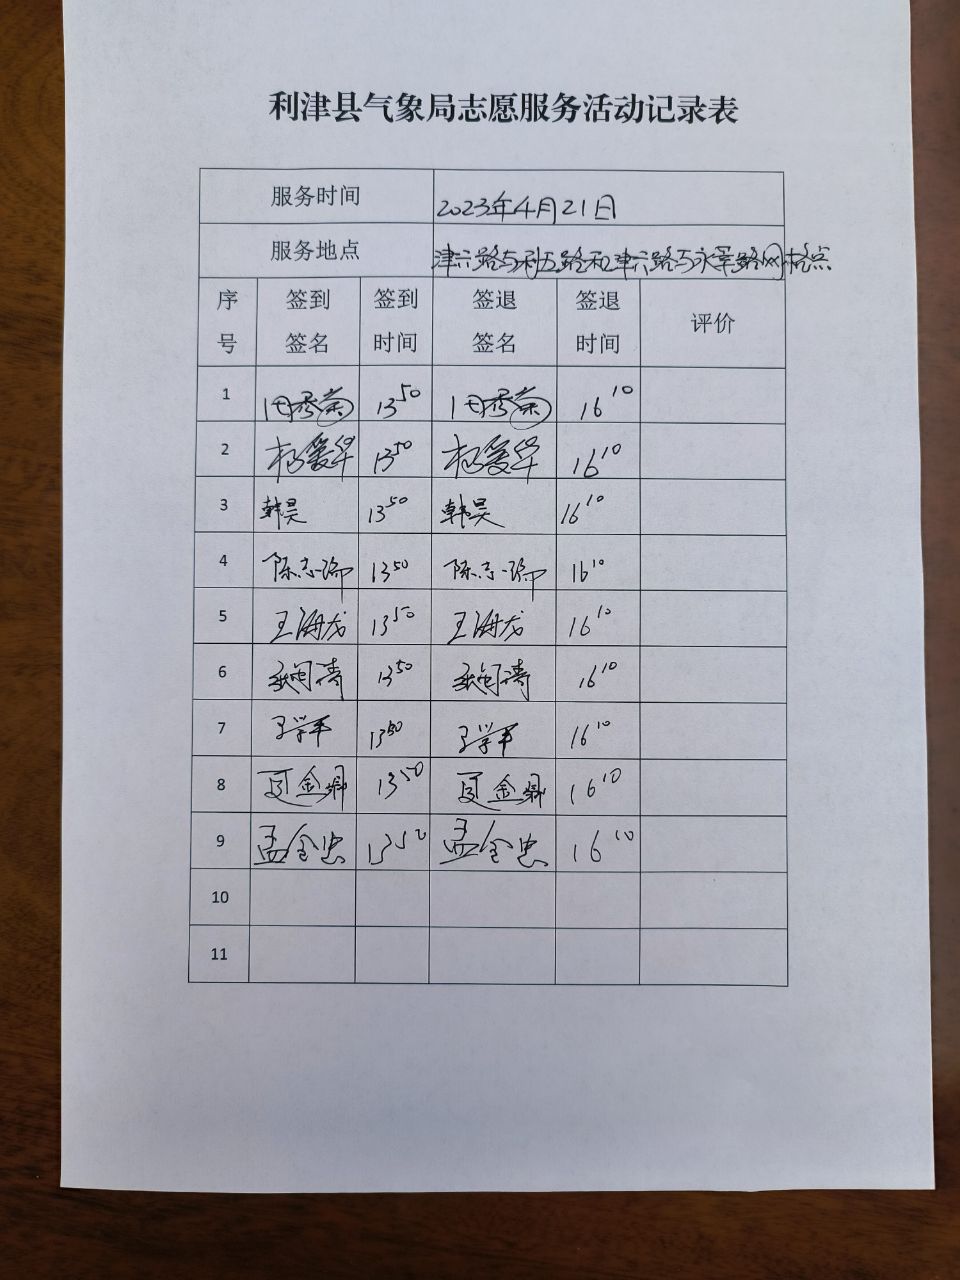 利津县气象局志愿服务活动记录表
服务时间 2023年4月21日
服务地点 津六路与利五路和津六路与永莘路网格点
序号 签到签名 签到时间 签退签名 签退时间 评价
1 田秀菊 13 50 田秀菊 16 10
2 杨爱华 13 50 杨爱华 16 10
3 韩昊 13 50 韩昊 16 10
4 陈志瑞 13 50 陈志瑞 16 10
5 王海龙 13 50 王海龙 16 10
6 13 50 16 10
7 王学军 13 50 王学军 16 10
8 夏金鼎 13 50 夏金鼎 16 10
9 孟全忠 13 50 孟全忠 16 10
10
11